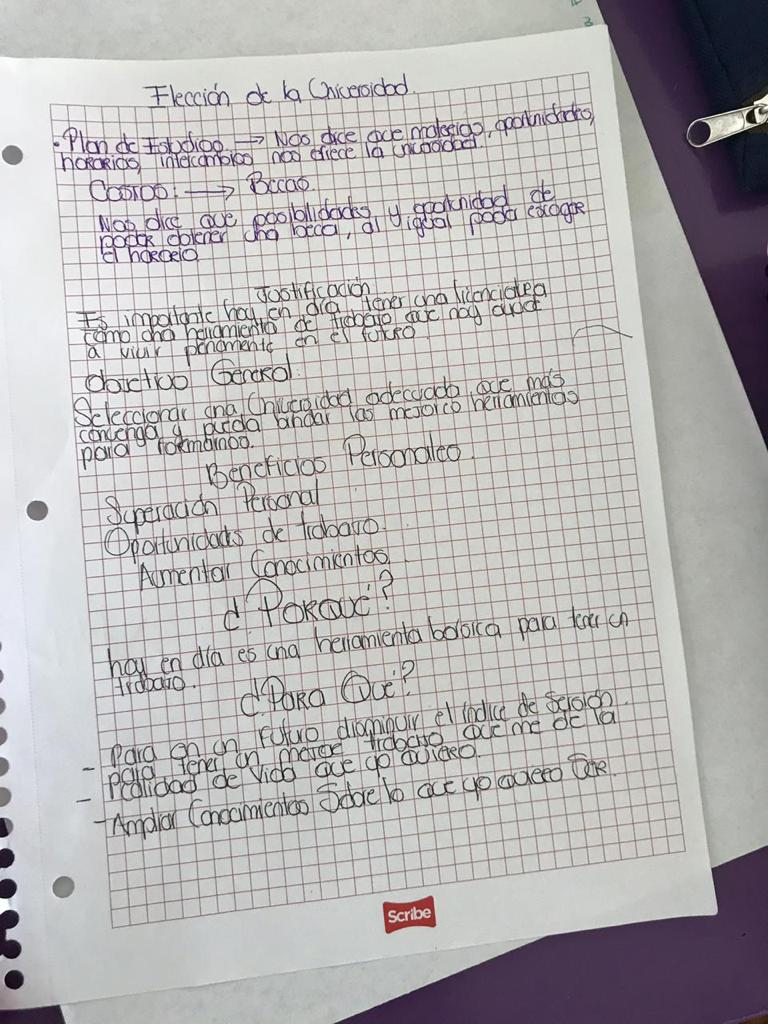 Elección de la Universidad.
• Plan de Estudios. → Nos dice que materias, oportunidades,
horarios, intercambios nos ofrece la universidad.
Costos: → Becas.
Nos dice que posibilidades y oportunidad de
poder obtener una beca, al igual poder escoger
el horario
Justificación
Es importante hoy en día tener una licenciatura
como una herramienta de trabajo que nos ayude
a vivir plenamente en el futuro.
Objetivo General:
Seleccionar una Universidad adecuada que más
convenga y pueda brindar las mejores herramientas
para formarnos.
Beneficios Personales.
Superación Personal
Oportunidades de trabajo.
Aumentar Conocimientos.
¿Porqué?
hoy en día es una herramienta básica para tener un
trabajo.
¿Para Qué?
- Para en un futuro disminuir el índice de
para tener un trabajo que me de la
- calidad de vida que yo quiero.
- Ampliar Conocimientos Sobre lo que yo quiero Ser.
Scribe